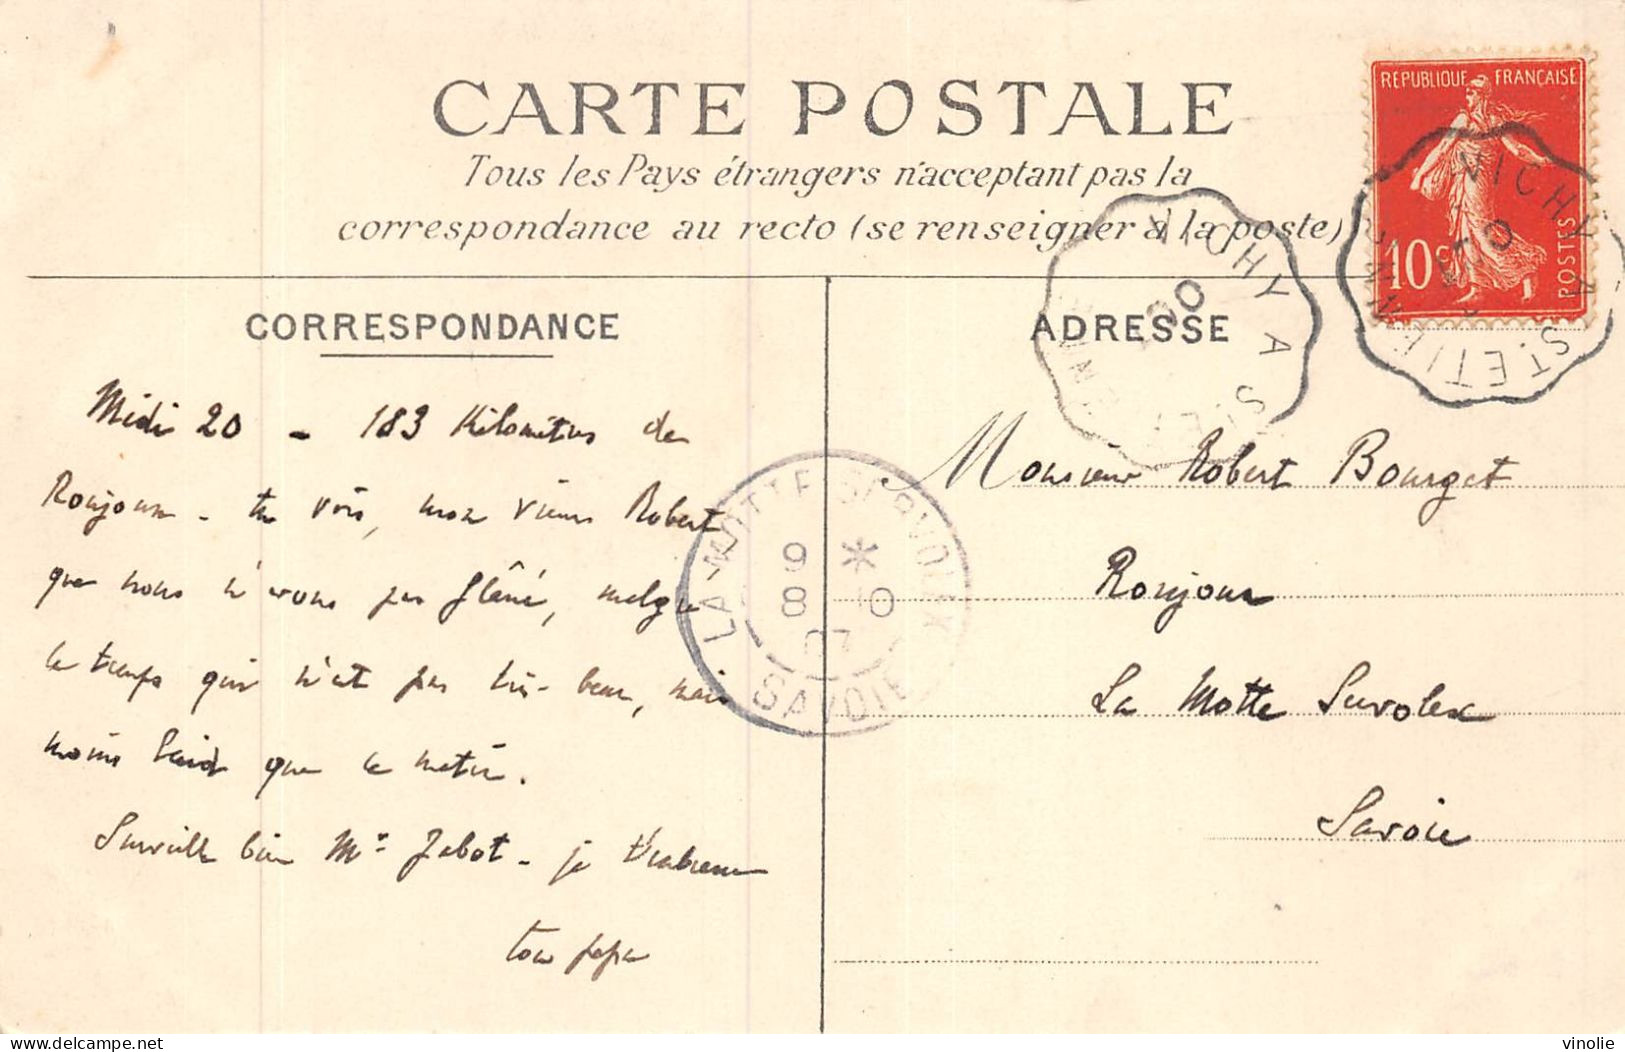 CARTE POSTALE
Tous les Pays étrangers n'acceptant pas la
correspondance au recto (se renseigner à la poste)
REPUBLIQUE FRANÇAISE
10c POSTES
VICHY A ST. ETIENNE
VICHY A ST. ET NNE
CORRESPONDANCE
Midi 20 - 183 Kilomètres de
Ronjoux - tu vois, mon vieux Robert,
que nous n'avons pas flâné, malgré
le temps qui n'est pas très-beau, mais
moins laid que ce matin.
Surveille bien Mr Jabot - je t'embrasse
ton papa
LA-MOTTE SERVOLEX
9 *
8 -0
07
SAVOIE
ADRESSE
Monsieur Robert Bourget
Ronjoux
La Motte Servolex
Savoie
delcampe.net
vinolie